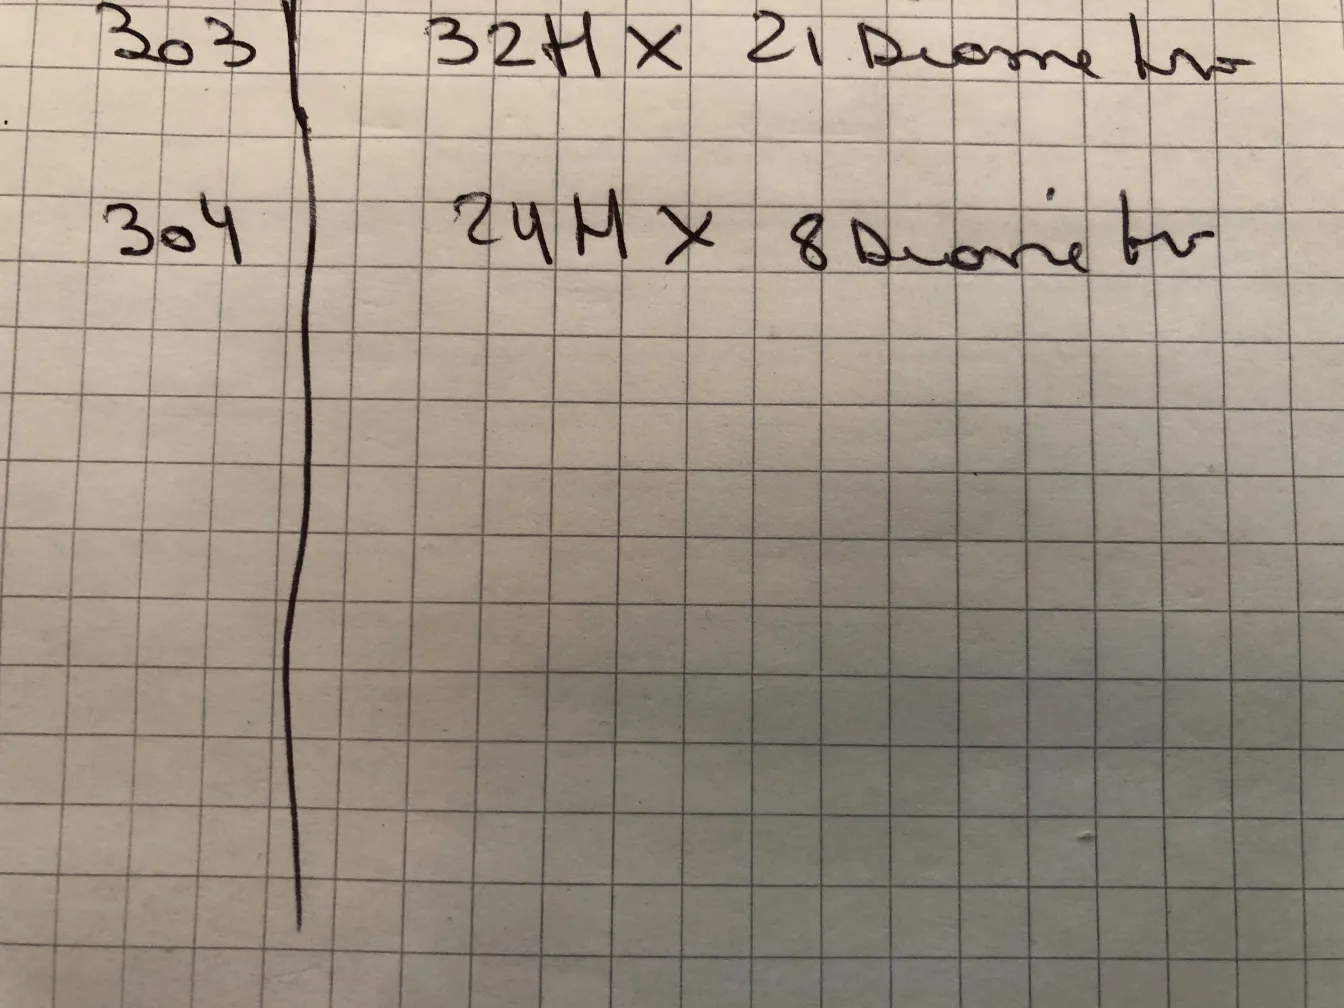 303 32H X 21 Diametro
304 24H X 8 Diametro